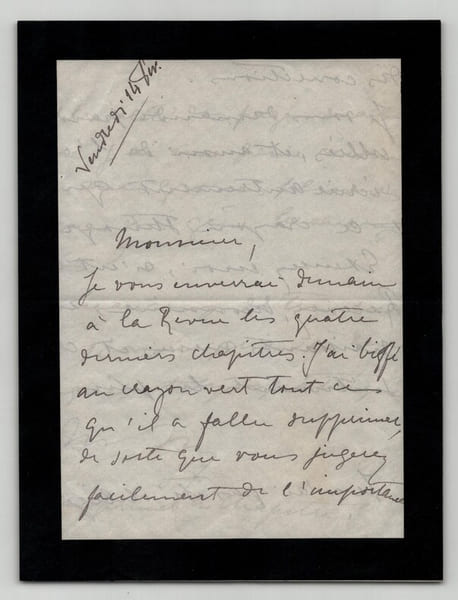 Vendredi 14 fév.
Monsieur,
Je vous enverrai demain
à la Revue les quatre
derniers chapitres. J'ai biffé
au crayon vert tout ce
qu'il a fallu supprimer,
de sorte que vous jugerez
facilement de l'importance